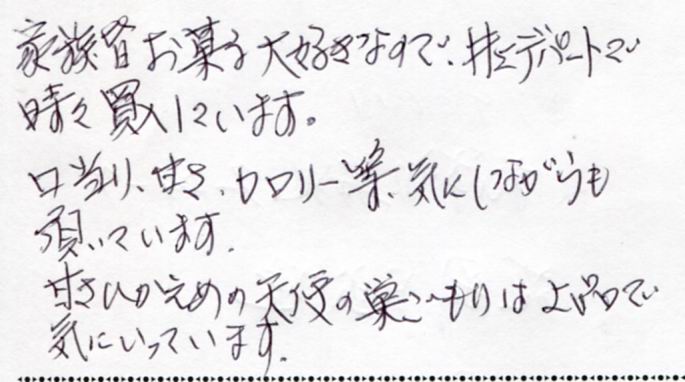 家族皆お菓子大好きなので、井上デパートで
時々買入しています。
口当り、甘さ、カロリー等、気にしながらも
頂いています。
甘さひかえめの天使の巣ごもりは上品で
気にいっています。